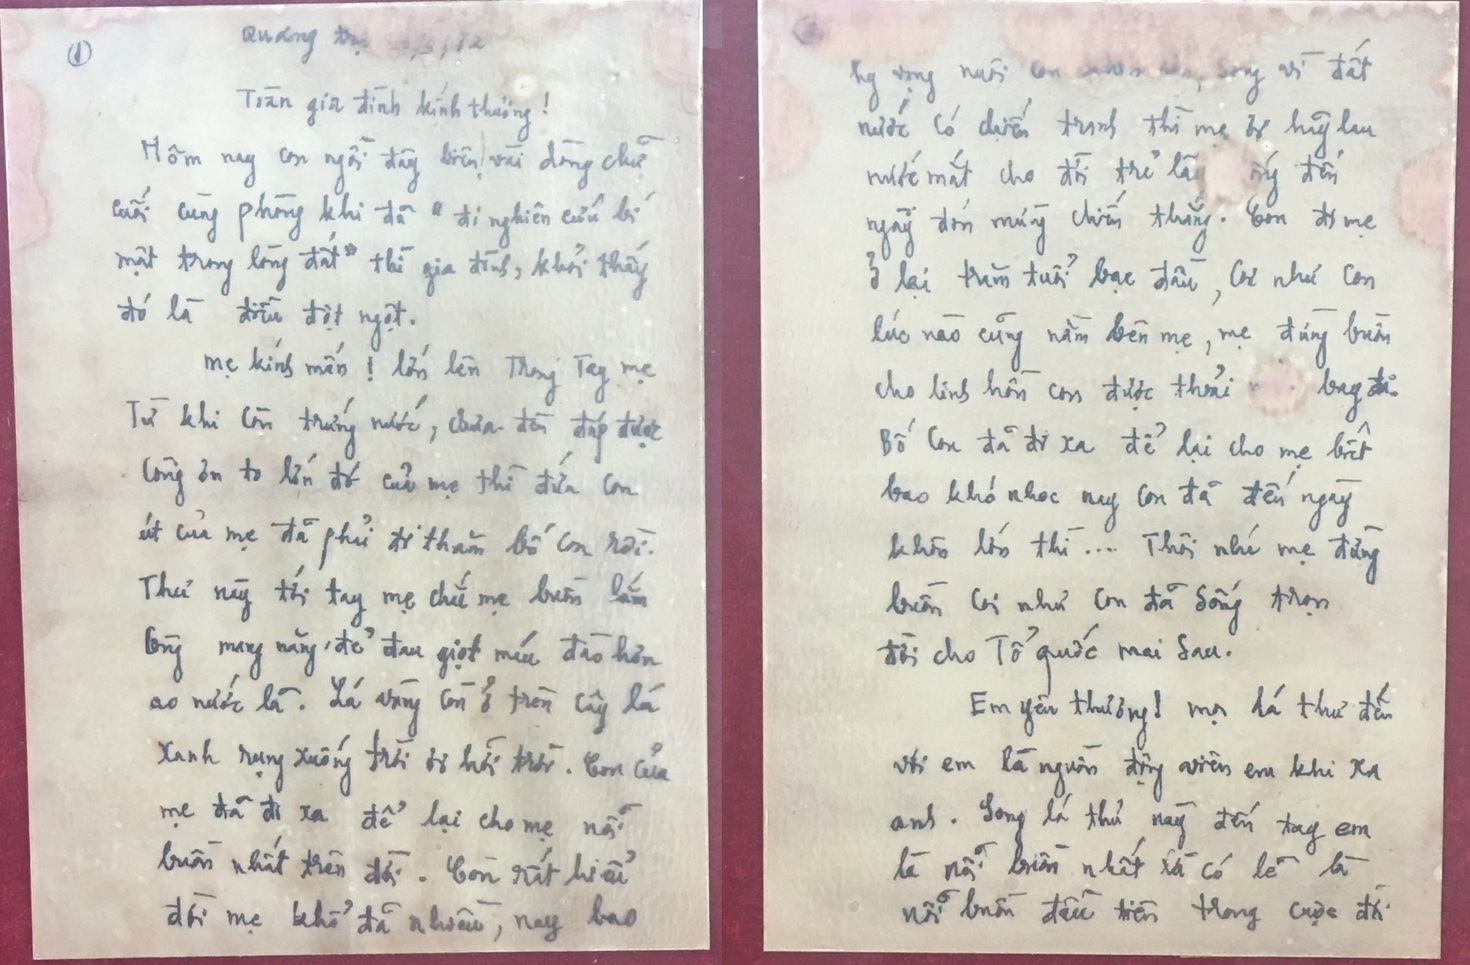 ①
Quảng trị
Toàn gia đình kính thương!
Hôm nay con ngồi đây biên vài dòng chữ
cuối cùng phòng khi đã "đi nghiên cứu bí
mật trong lòng đất" thì gia đình, khỏi thấy
đó là điều đột ngột.
mẹ kính mến! lớn lên Trong Tay mẹ
Từ khi còn trứng nước, chưa đền đáp được
công ơn to lớn đó của mẹ thì đứa con
út của mẹ đã phải đi thăm bố con rồi.
Thư này tới tay mẹ chắc mẹ buồn lắm
công mang nặng, đẻ đau giọt máu đào hơn
ao nước lã. Lá vàng còn ở trên cây lá
xanh rụng xuống trời ơi hỡi trời. Con của
mẹ đã đi xa để lại cho mẹ nỗi
buồn nhất trên đời. Con rất hiểu
đời mẹ khổ đã nhiều, nay bao
hy vọng nuôi con song vì đất
nước có chiến tranh thì mẹ ơi hãy lau
nước mắt cho đời trẻ lâu đến
ngày đón mừng chiến thắng. Con đi mẹ
ở lại trăm tuổi bạc đầu, coi như con
lúc nào cũng nằm bên mẹ, mẹ đừng buồn
cho linh hồn con được thoải bay đi.
Bố con đã đi xa để lại cho mẹ biết
bao khó nhọc nay con đã đến ngày
khôn lớn thì.... Thôi nhé mẹ đừng
buồn coi như con đã sống trọn
đời cho Tổ quốc mai sau.
Em yêu thương! mọi lá thư đến
với em là nguồn động viên em khi xa
anh. Song lá thư này đến tay em
là nỗi buồn nhất và có lẽ là
nỗi buồn đầu tiên trong cuộc đời